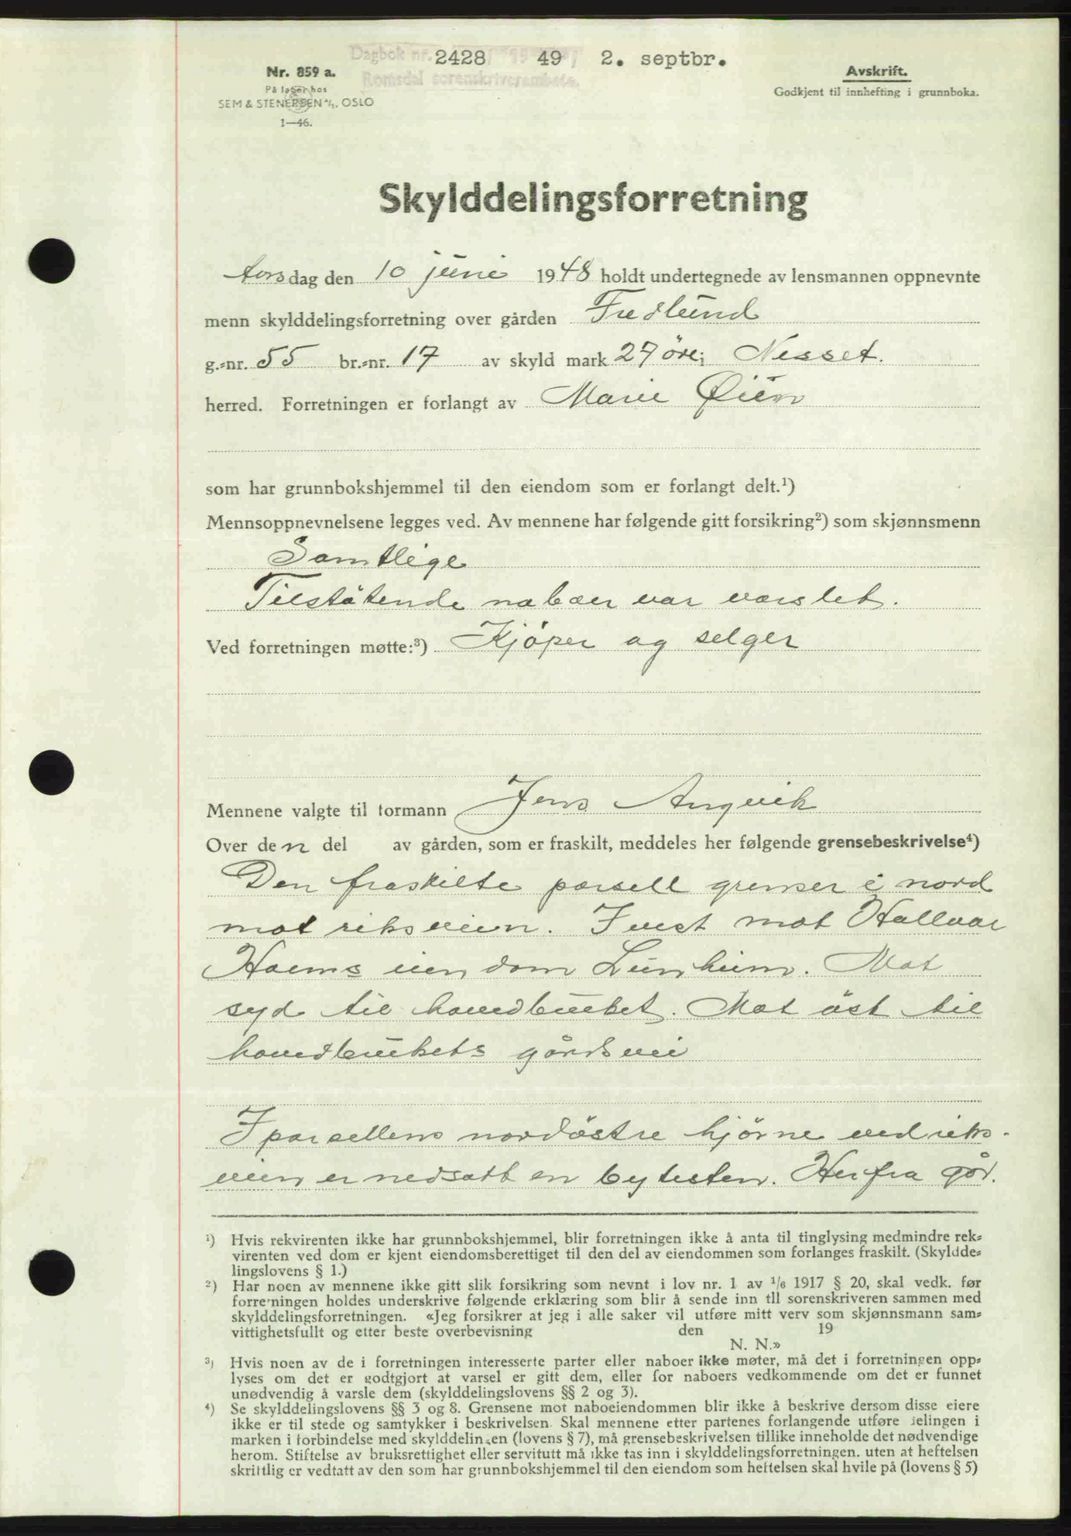 Dagbok nr. 2428 49 2. septbr.
Romsdal sorenskriverembete.
Nr. 859 a.
På lager hos
SEM & STENERSEN A/S, OSLO
1—46.
Avskrift.
Godkjent til innhefting i grunnboka.
Skylddelingsforretning
torsdag den 10 juni 1948 holdt undertegnede av lensmannen oppnevnte
menn skylddelingsforretning over gården Fredlund
g.-nr. 55 br.-nr. 17 av skyld mark 27 öre i Nesset.
herred. Forretningen er forlangt av Marie Øien
som har grunnbokshjemmel til den eiendom som er forlangt delt.¹)
Mennsoppnevnelsene legges ved. Av mennene har følgende gitt forsikring²) som skjønnsmenn
Samtlige
Tilstötende naboer var varslet.
Ved forretningen møtte:³) Kjöper og selger
Mennene valgte til formann Jens Angvik
Over den del av gården, som er fraskilt, meddeles her følgende grensebeskrivelse⁴)
Den fraskilte parsell grenser i nord
mot riksveien. I vest mot Hallvar
Hoems eiendom Lunheim. Mot
syd til hovedbruket. Mot öst til
hovedbrukets gårdsvei
I parsellens nordöstre hjörne ved riks-
veien er nedsatt en bytesten. Herfra går.
¹) Hvis rekvirenten ikke har grunnbokshjemmel, blir forretningen ikke å anta til tinglysing medmindre rek-
virenten ved dom er kjent eiendomsberettiget til den del av eiendommen som forlanges fraskilt. (Skyldde-
lingslovens § 1.)
²) Har noen av mennene ikke gitt slik forsikring som nevnt i lov nr. 1 av 1/6 1917 § 20, skal vedk. før
forretningen holdes underskrive følgende erklæring som blir å sende inn til sorenskriveren sammen med
skylddelingsforretningen. «Jeg forsikrer at jeg i alle saker vil utføre mitt verv som skjønnsmann sam-
vittighetsfullt og etter beste overbevisning den 19
N. N.»
³) Hvis noen av de i forretningen interesserte parter eller naboer ikke møter, må det i forretningen opp-
lyses om det er godtgjort at varsel er gitt dem, eller for naboers vedkommende om det er funnet
unødvendig å varsle dem (skylddelingslovens §§ 2 og 3).
⁴) Se skylddelingslovens §§ 3 og 8. Grensene mot naboeiendommen blir ikke å beskrive dersom disse eiere
ikke er til stede og samtykker i beskrivelsen. Skal mennene etter partenes forlangende utføre delingen i
marken i forbindelse med skylddelingen (lovens § 7), må grensebeskrivelsen tillike inneholde det nødvendige
herom. Stiftelse av bruksrettighet eller servitutt må ikke tas inn i skylddelingsforretningen, uten at heftelsen
skriftlig er vedtatt av den som har grunnbokshjemmel til den eiendom som heftelsen skal hvile på (lovens § 5)